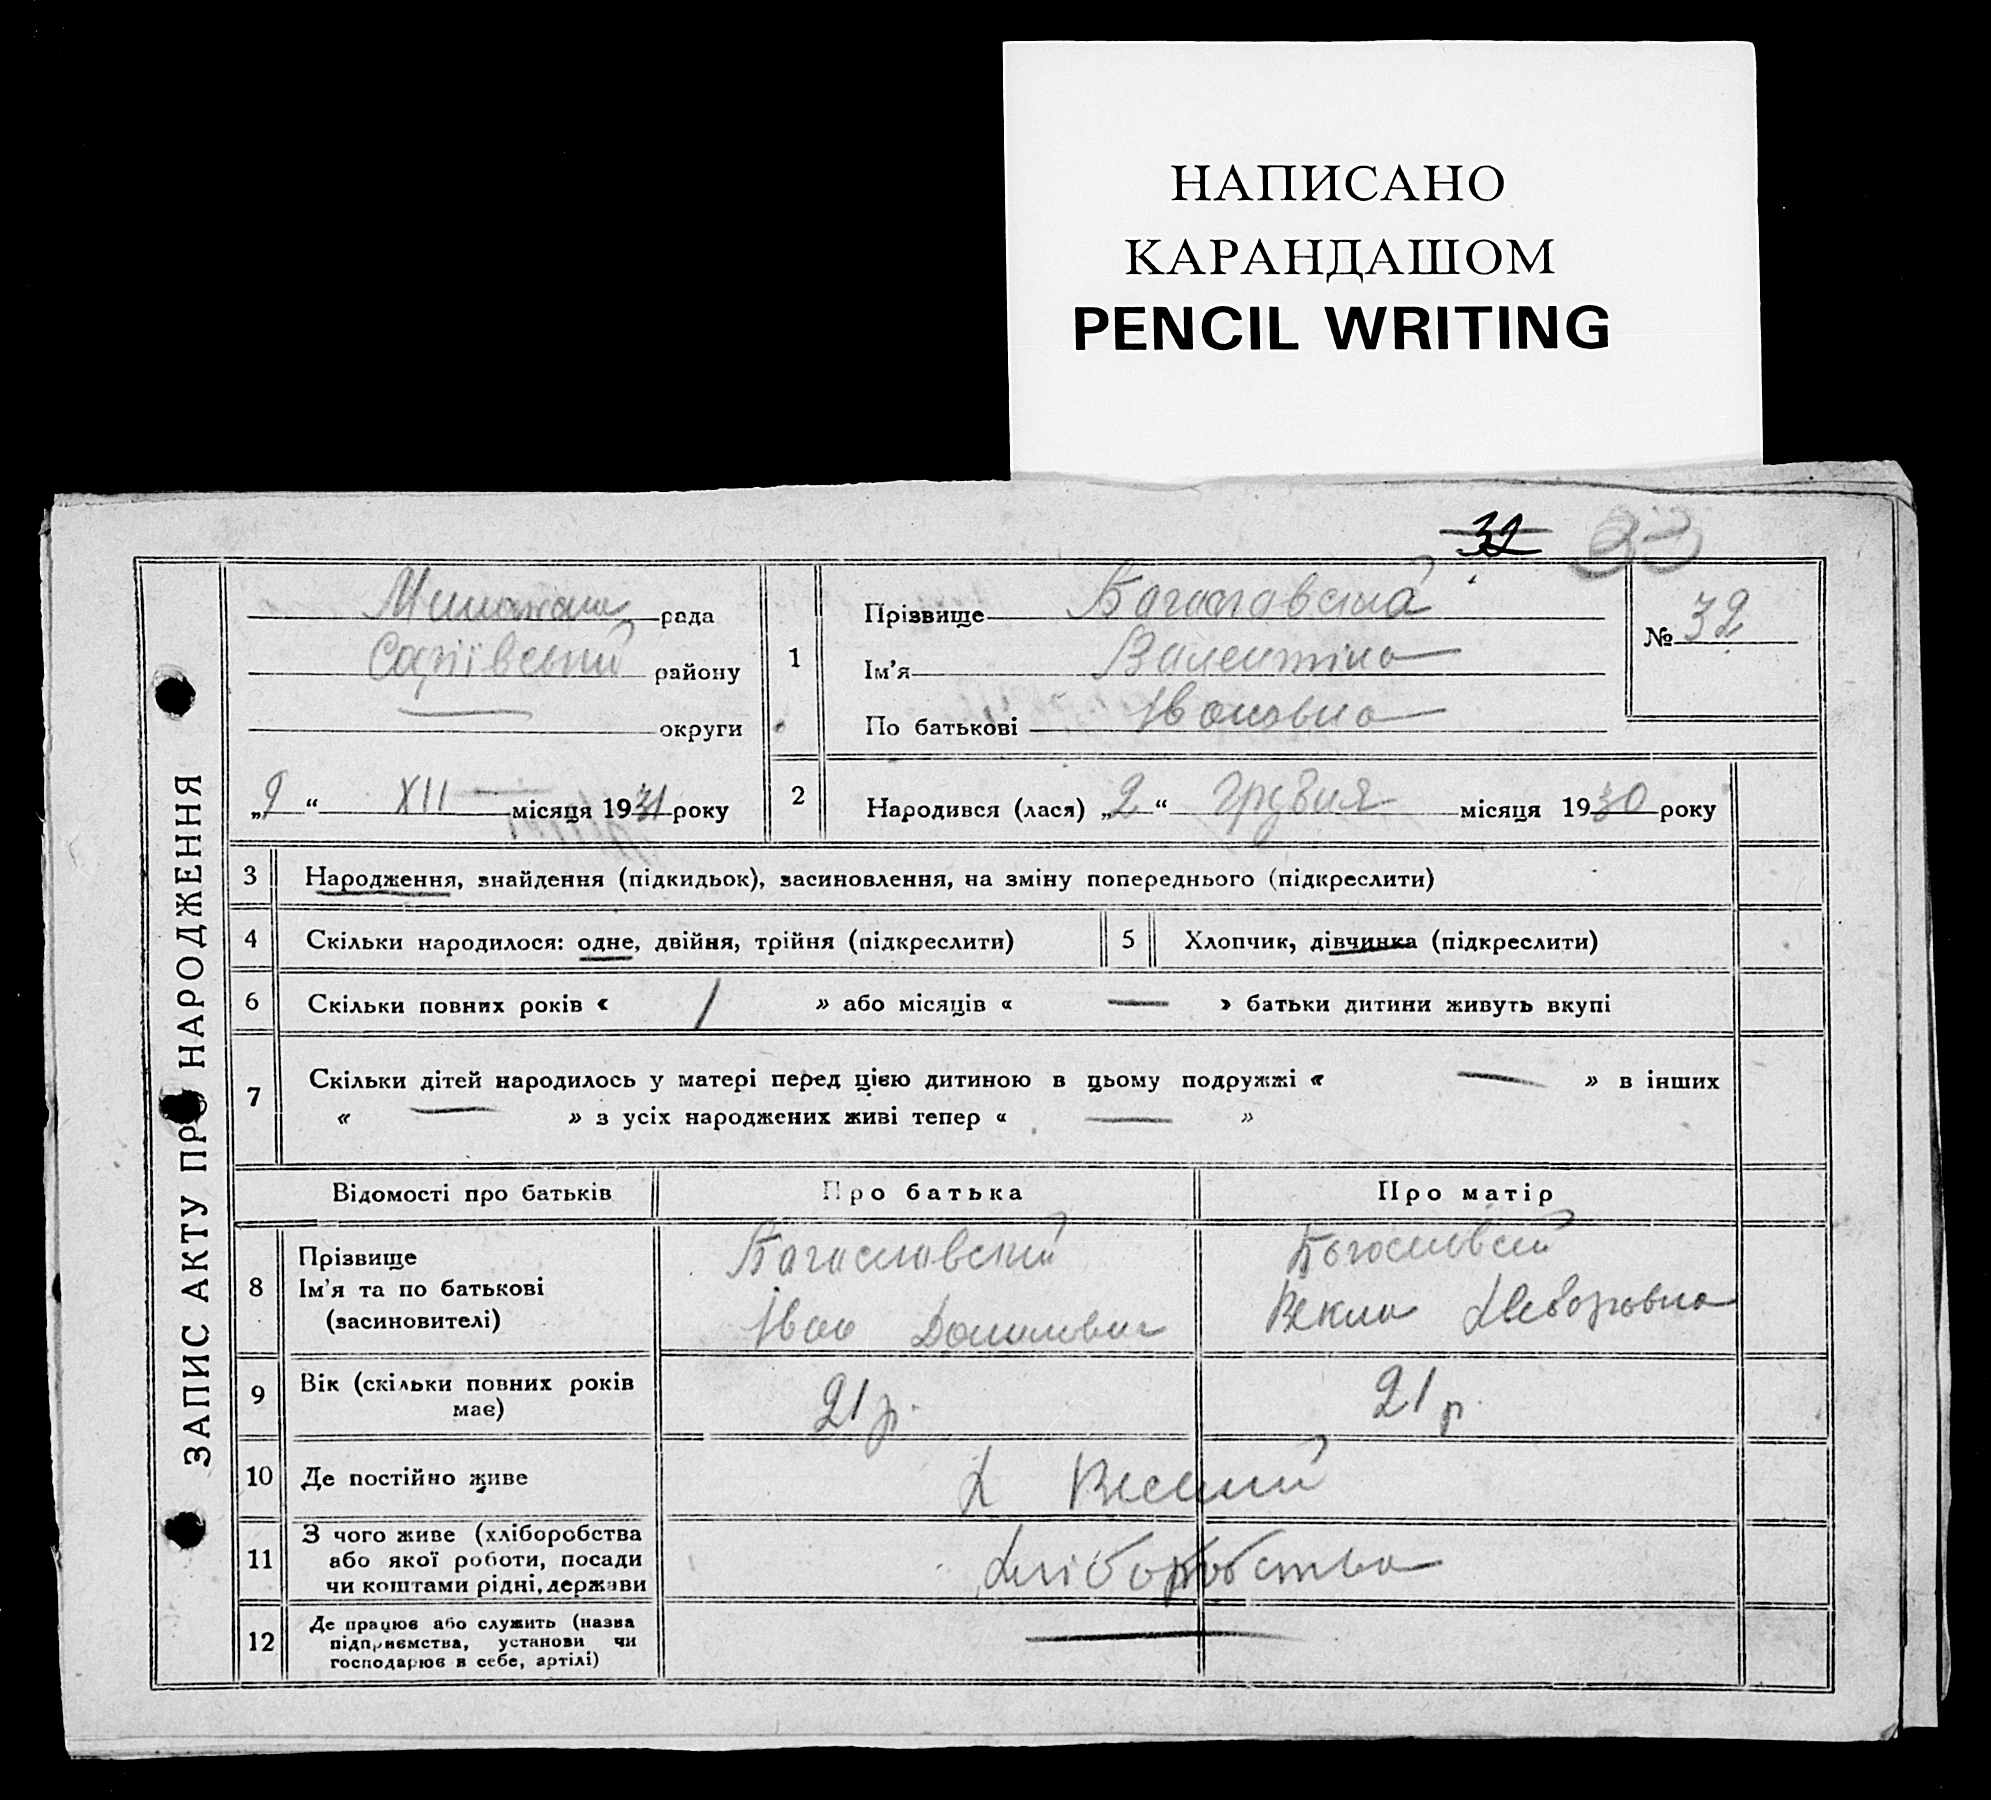 НАПИСАНО
КАРАНДАШОМ
PENCIL WRITING
32 33
ЗАПИС АКТУ ПРО НАРОДЖЕННЯ
рада
Софіївський району
— округи
„9“ XII місяця 1931 року
1
Прізвище Богославский
Ім'я Валентіна
По батькові Івановна
№ 32
2 Народився (лася) „2“ грудня місяця 1930 року
3 Народження, знайдення (підкидьок), засиновлення, на зміну попереднього (підкреслити)
4 Скільки народилося: одне, двійня, трійня (підкреслити) 5 Хлопчик, дівчинка (підкреслити)
6 Скільки повних років « 1 » або місяців « — » батьки дитини живуть вкупі
7 Скільки дітей народилось у матері перед цією дитиною в цьому подружжі « — » в інших
« — » з усіх народжених живі тепер « — »
Відомості про батьків Про батька Про матір
8 Прізвище
Ім'я та по батькові
(засновителі)
Богославский
Іван Данилович
Богославский
Векла
9 Вік (скільки повних років
має)
21 р. 21 р.
10 Де постійно живе Х
11 З чого живе (хліборобства
або якої роботи, посади
чи коштами рідні, держави
хліборобства
12 Де працює або служить (назва
підприємства, установи чи
господарює в себе, артілі)
—